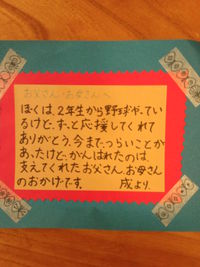 お父さん・お母さんへ
ぼくは、2年生から野球やってい
るけど、ずっと応援してくれて
ありがとう。今まで、つらいことが
あったけど、がんばれたのは、
支えてくれたお父さん、お母さん
のおかげです。 成より